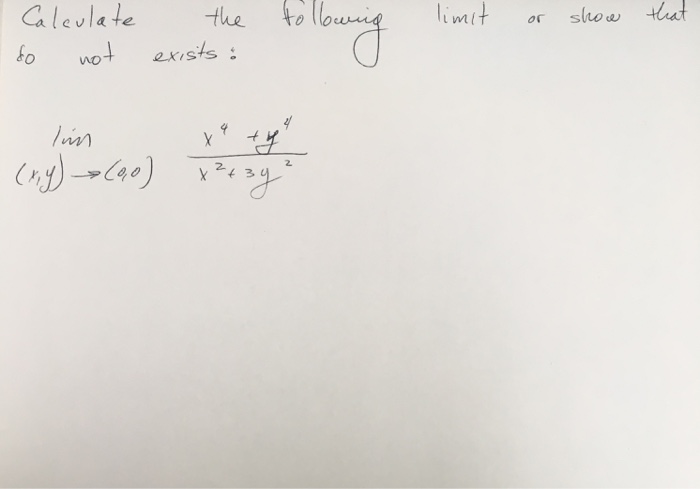 Calculate the following limit or show that
do not exists :
lim x⁴ + y⁴
(x,y) → (0,0) x² + 3y²